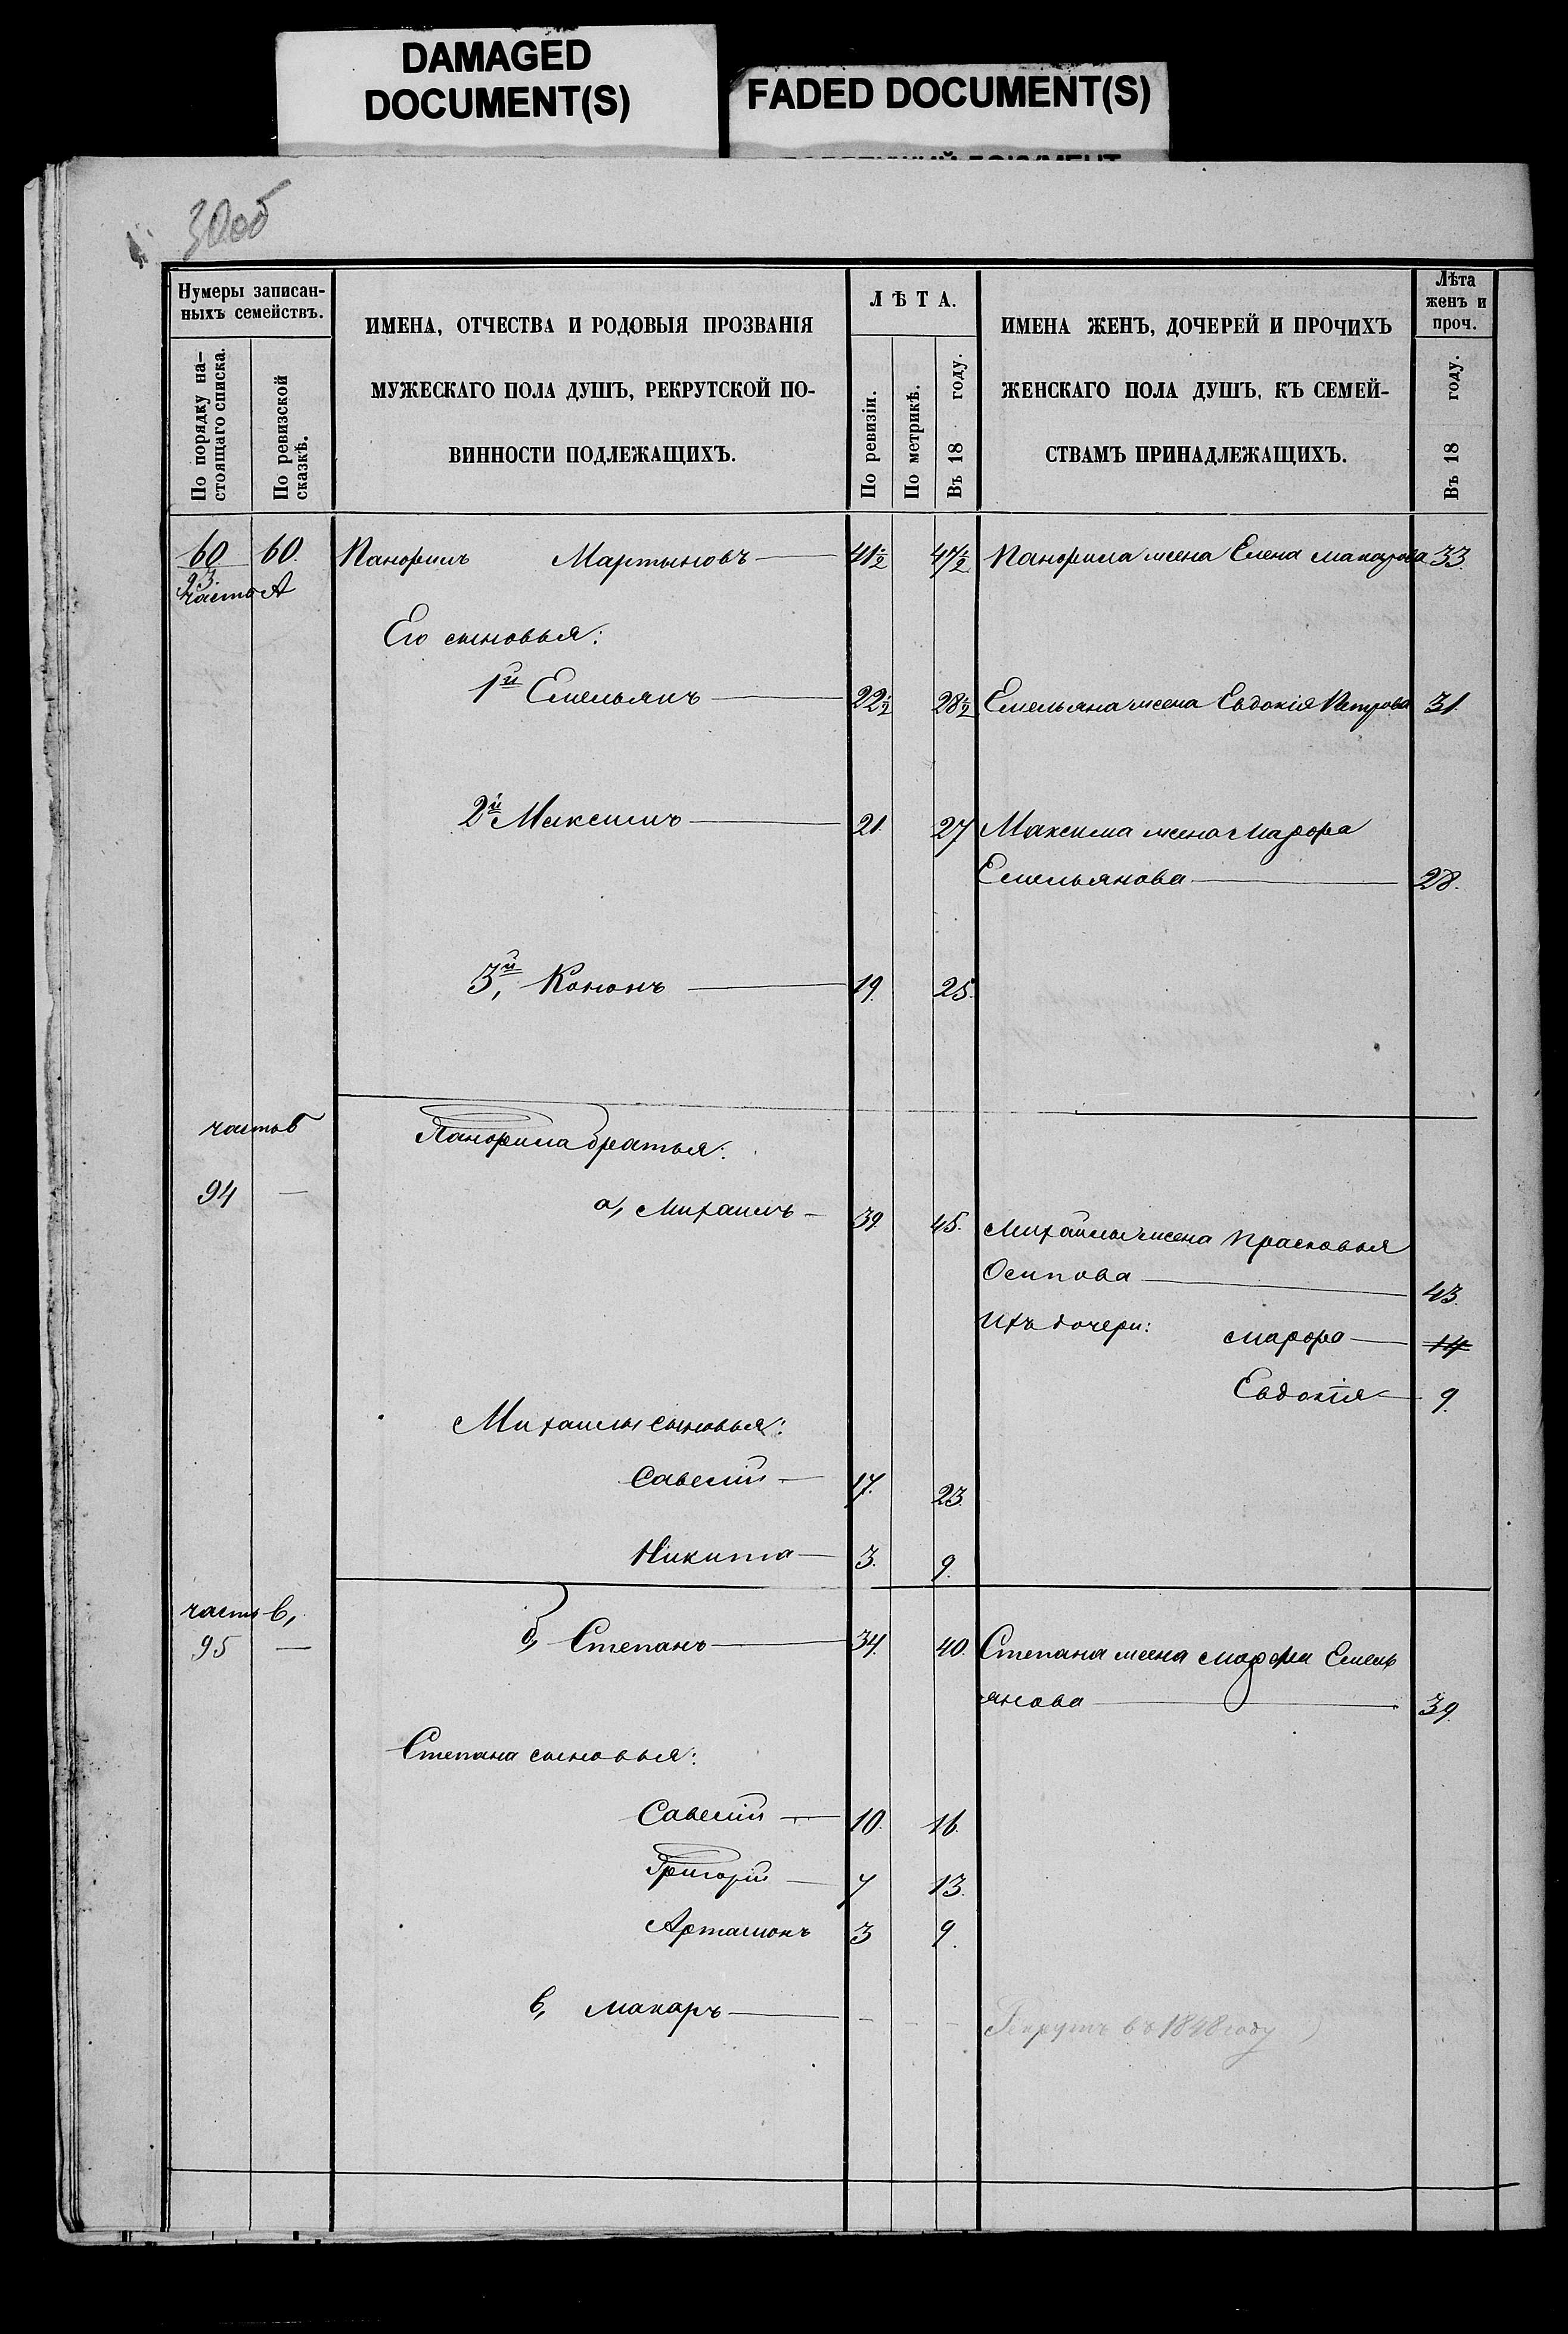 DAMAGED
DOCUMENT(S)
FADED DOCUMENT(S)
30об
Нумеры записан-
ныхъ семействъ.
По порядку на-
стоящаго списка.
По ревизской
сказкѣ.
ИМЕНА, ОТЧЕСТВА И РОДОВЫЯ ПРОЗВАНІЯ
МУЖЕСКАГО ПОЛА ДУШЪ, РЕКРУТСКОЙ ПО-
ВИННОСТИ ПОДЛЕЖАЩИХЪ.
ЛѢТА.
По ревизіи.
По метрикѣ.
Въ 18 году.
ИМЕНА ЖЕНЪ, ДОЧЕРЕЙ И ПРОЧИХЪ
ЖЕНСКАГО ПОЛА ДУШЪ, КЪ СЕМЕЙ-
СТВАМЪ ПРИНАДЛЕЖАЩИХЪ.
Лѣта
женъ и
проч.
Въ 18 году.
60 60. Панфилъ Мартыновъ 41½ 47½ Панфила жена Елена Макарова 33.
93.
часть А
Его сыновья:
1й Емельянъ 22½ 28½ Емельяна жена Евдокія Петрова 31.
2й Максимъ 21. 27 Максима жена Марфа
Емельянова 28.
3й, Кононъ 19. 25.
часть б Панфила братья:
94 — а, Михаилъ 39. 45. Михаилы жена Прасковья
Осипова 43.
Ихъ дочери: Марфа 14
Евдокія 9.
Михаилы сыновья:
Савелій 17. 23.
Никита 3. 9.
часть в,
95 — б, Степанъ 34. 40. Степана жена Марфа Емель
янова 39.
Степана сыновья:
Савелій 10. 16.
Григорій 7 13.
Артамонъ 3 9.
в, Макаръ — — — Рекрутъ въ 1848 году